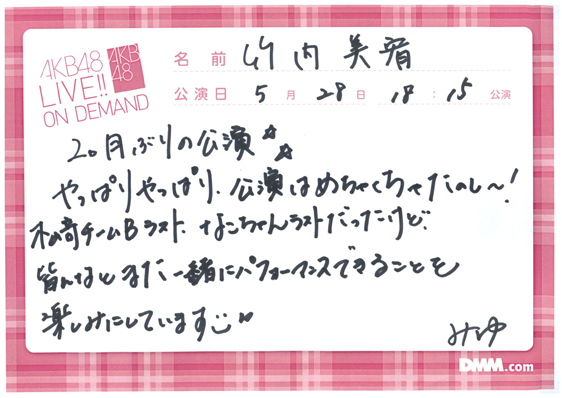 AKB48
LIVE!!
ON DEMAND
AKB
48
名前 竹内美宥
公演日 5月28日 18:15公演
2ヶ月ぶりの公演☆☆
やっぱりやっぱり、公演はめちゃくちゃたのし〜!
木﨑チームBラスト、なこちゃんラストだったけど、
皆んなとまた一緒にパフォーマンスできることを
楽しみにしています
みゆ
DMM.com